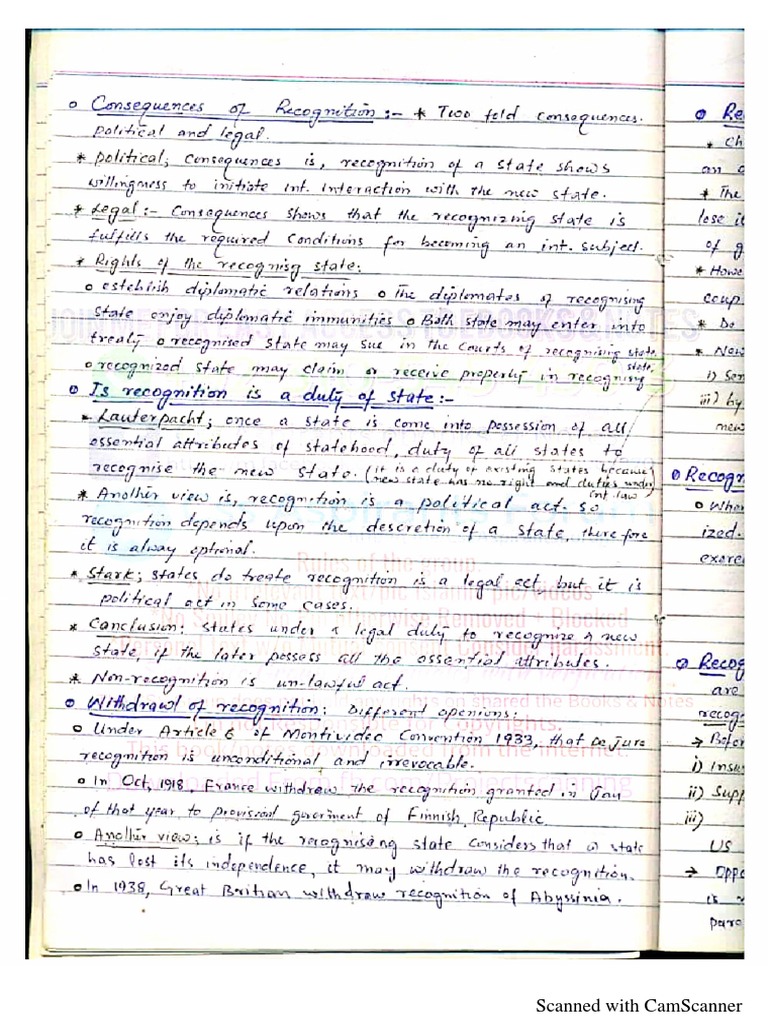 o Consequences of Recognition :- * Two fold consequences.
political and legal.
* political; Consequences is, recognition of a state shows
willingness to initiate int. interaction with the new state.
* Legal :- Consequences shows that the recognizing state is
fulfills the required conditions for becoming an int. subject.
* Rights of the recognisg state:
o establish diplomatic relations o The diplomates of recognising
state enjoy diplomatic immunities o Both state may enter into
treaty o recognised state may sue in the courts of recognising state.
o recognized state may claim or receive property in recognisng state.
o Is recognition is a duty of state :-
* Lauterpacht; once a state is come into possession of all
essential attributes of statehood, duty of all states to
recognise the new state. (it is a duty of existing states because
new state has no right and duties under int. law)
* Another view is, recognition is a political act. so
recognition depends upon the descretion of a state, therefore
it is alway optional.
* Stark; states do treate recognition is a legal act but it is
political act in some cases.
* Conclusion: states under a legal duty to recognize a new
state, if the later possess all the essential attributes.
* Non-recognition is un-lawful act.
o Withdrawl of recognition: Different openions:
o Under Article 6 of Montividec Convention 1933, that De Jure
recognition is unconditional and irrevocable.
o In Oct, 1918, France withdrew the recognition granted in Jan
of that year to provisional goverment of Finnish Republic.
o Another view; is if the recognising state considers that a state
has lost its independence, it may withdraw the recognition.
o In 1938, Great Britian withdraw recognition of Abyssinia.
JOIN ME FOR EASY ACCESS TO EBOOKS & NOTES
Rules of the group.
Removed + Blocked
Harassment.
rights on shared the Books & Notes
not Responsible for Copyrights.
This book/notes downloaded from the internet.
o Re
* Ch
an
* The
lose i
of g
* Howe
ccup
* Do
* New
i)
iii) by
new
o Recogn
o When
ized.
exerci
o Recog
are
recog
→ Befor
i) Insu
ii) Supp
iii)
US
→ Oppo
is
para
Scanned with CamScanner